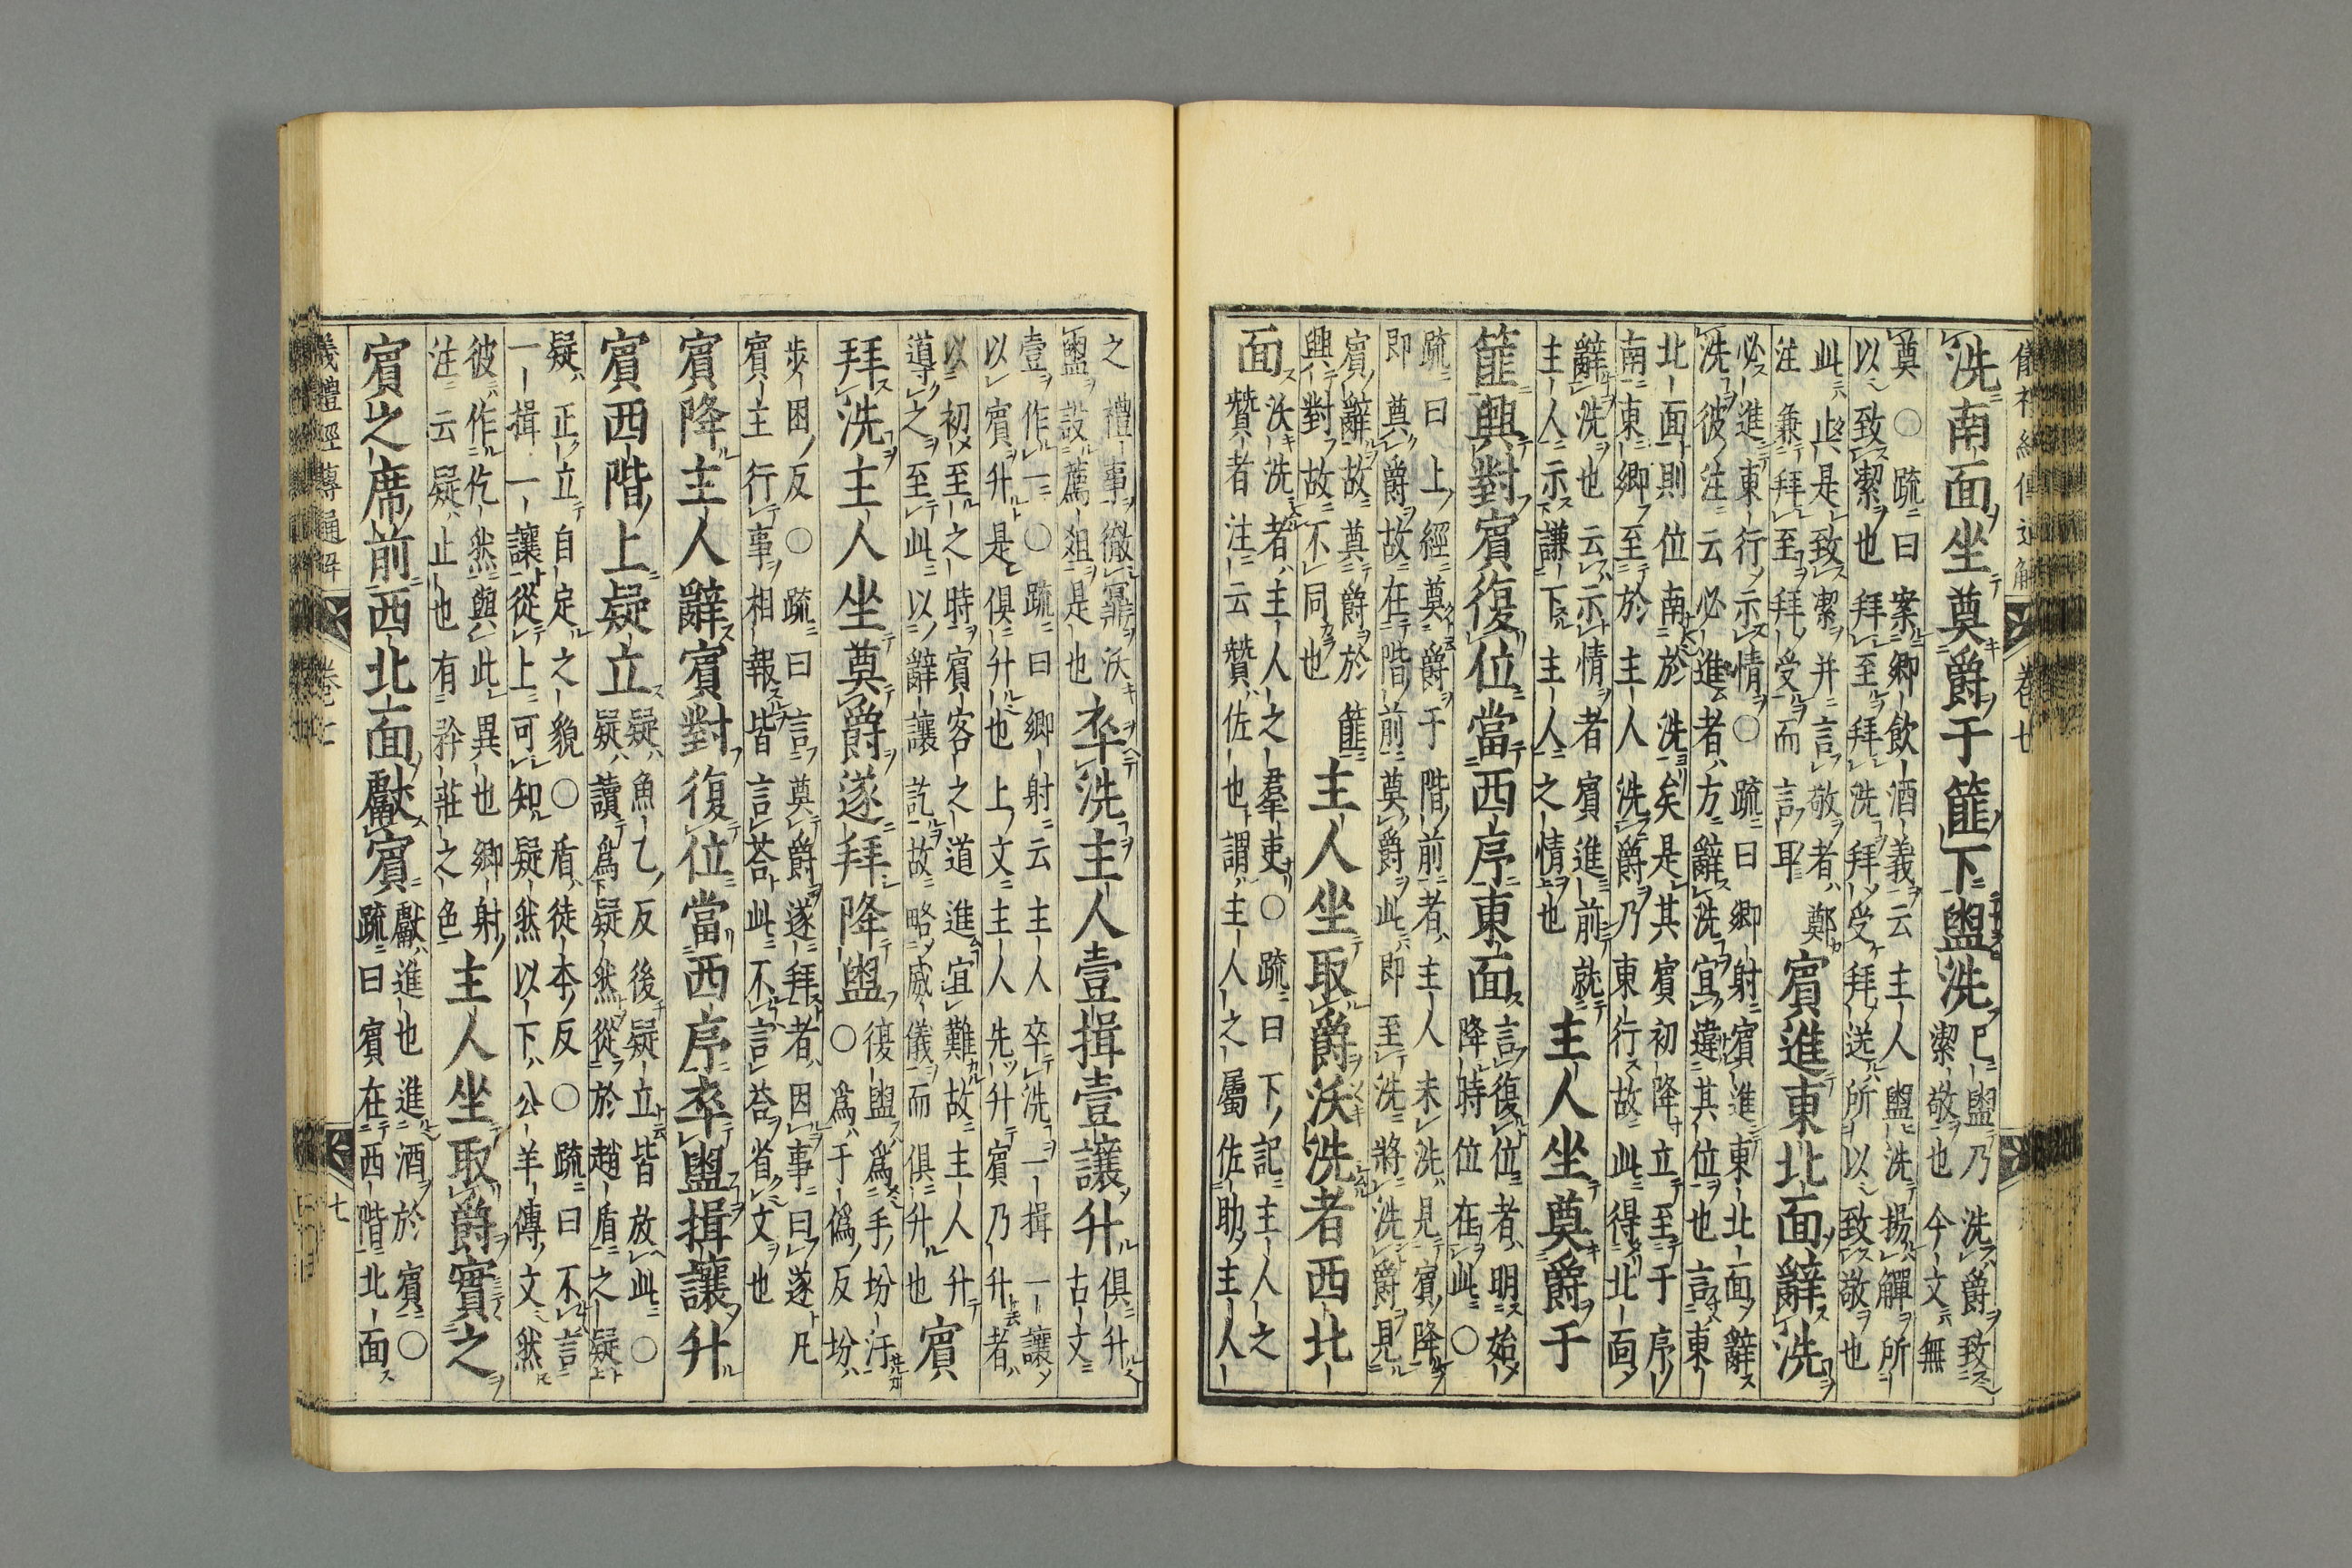 洗南面坐奠爵于篚下盥洗已盥乃洗爵致
潔敬也今文無
奠○疏曰案鄉飲酒義云主人盥洗揚觶所
以致潔也拜至拜洗拜受拜送所以致敬也
此止是致潔并言敬者鄭
注兼拜至拜受而言耳賓進東北面辭洗
必進東行示情○疏曰鄉射賓進東北面辭
洗彼注云必進者方辭洗宜違其位也言東
北面則位南於洗矣是其賓初降立至于序
南東鄉至於主人洗爵乃東行故此得北面
辭洗也云示情者賓進前就
主人示謙下主人之情也主人坐奠爵于
篚興對賓復位當西序東面言復位者明始
降時位在此○
疏曰上經奠爵于階前者主人未洗見賓降
即奠爵故在階前奠爵此即至洗將洗爵見
賓辭故奠爵於篚
興對故不同也主人坐取爵沃洗者西北
面沃洗者主人之羣吏○疏曰下記主人之
贊者注云贊佐也謂主人之屬佐助主人
之禮事徹鼏沃
盥設薦俎是也卒洗主人壹揖壹讓升俱升
古文
壹作一○疏曰鄉射云主人卒洗一揖一讓
以賓升是俱升也上文主人先升賓乃升者
以初至之時賓客之道進宜難故主人升
導之至此以辭讓訖故略威儀而俱升也賓
拜洗主人坐奠爵遂拜降盥復盥爲手坋汙
○爲于僞反坋
步困反○疏曰言奠爵遂拜者因事曰遂凡
賓主行事相報皆言荅此不言荅省文也
賓降主人辭賓對復位當西序卒盥揖讓升
賓西階上疑立疑魚乙反後疑立皆放此○
疑讀爲疑然從於趙盾之疑
疑正立自定之貌○盾徒本反○疏曰不言
一揖一讓從上可知疑然以下公羊傳文然
彼作仡然與此異也鄉射
注云疑止也有矜莊之色主人坐取爵實之
賓之席前西北面獻賓獻進也進酒於賓○
疏曰賓在西階北面
儀禮經傳通解 卷七 七